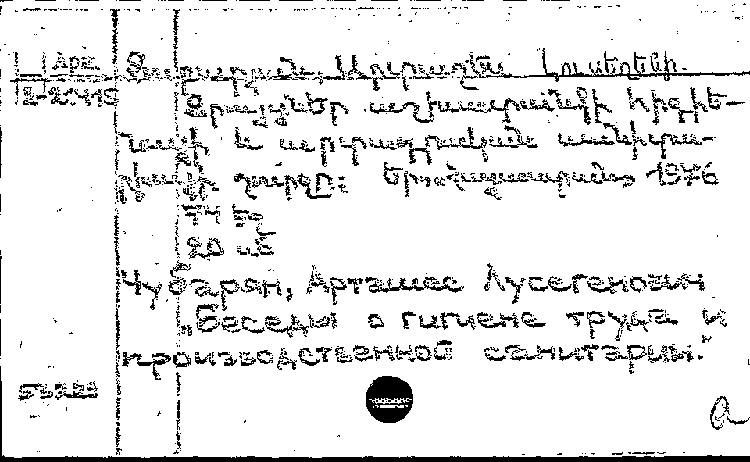 Арх.
2-20415
Չուբարյան, Արտաշես Լուսեղենի.
Զրույցներ աշխատանքի հիգիե-
նայի և արտադրական սանիտա-
րիայի շուրջը: Եր. «Հայաստան» 1976
74 էջ
20 սմ
Чубарян, Арташес Лусегенович
„Беседы о гигиене труда и
производственной санитарии."
а